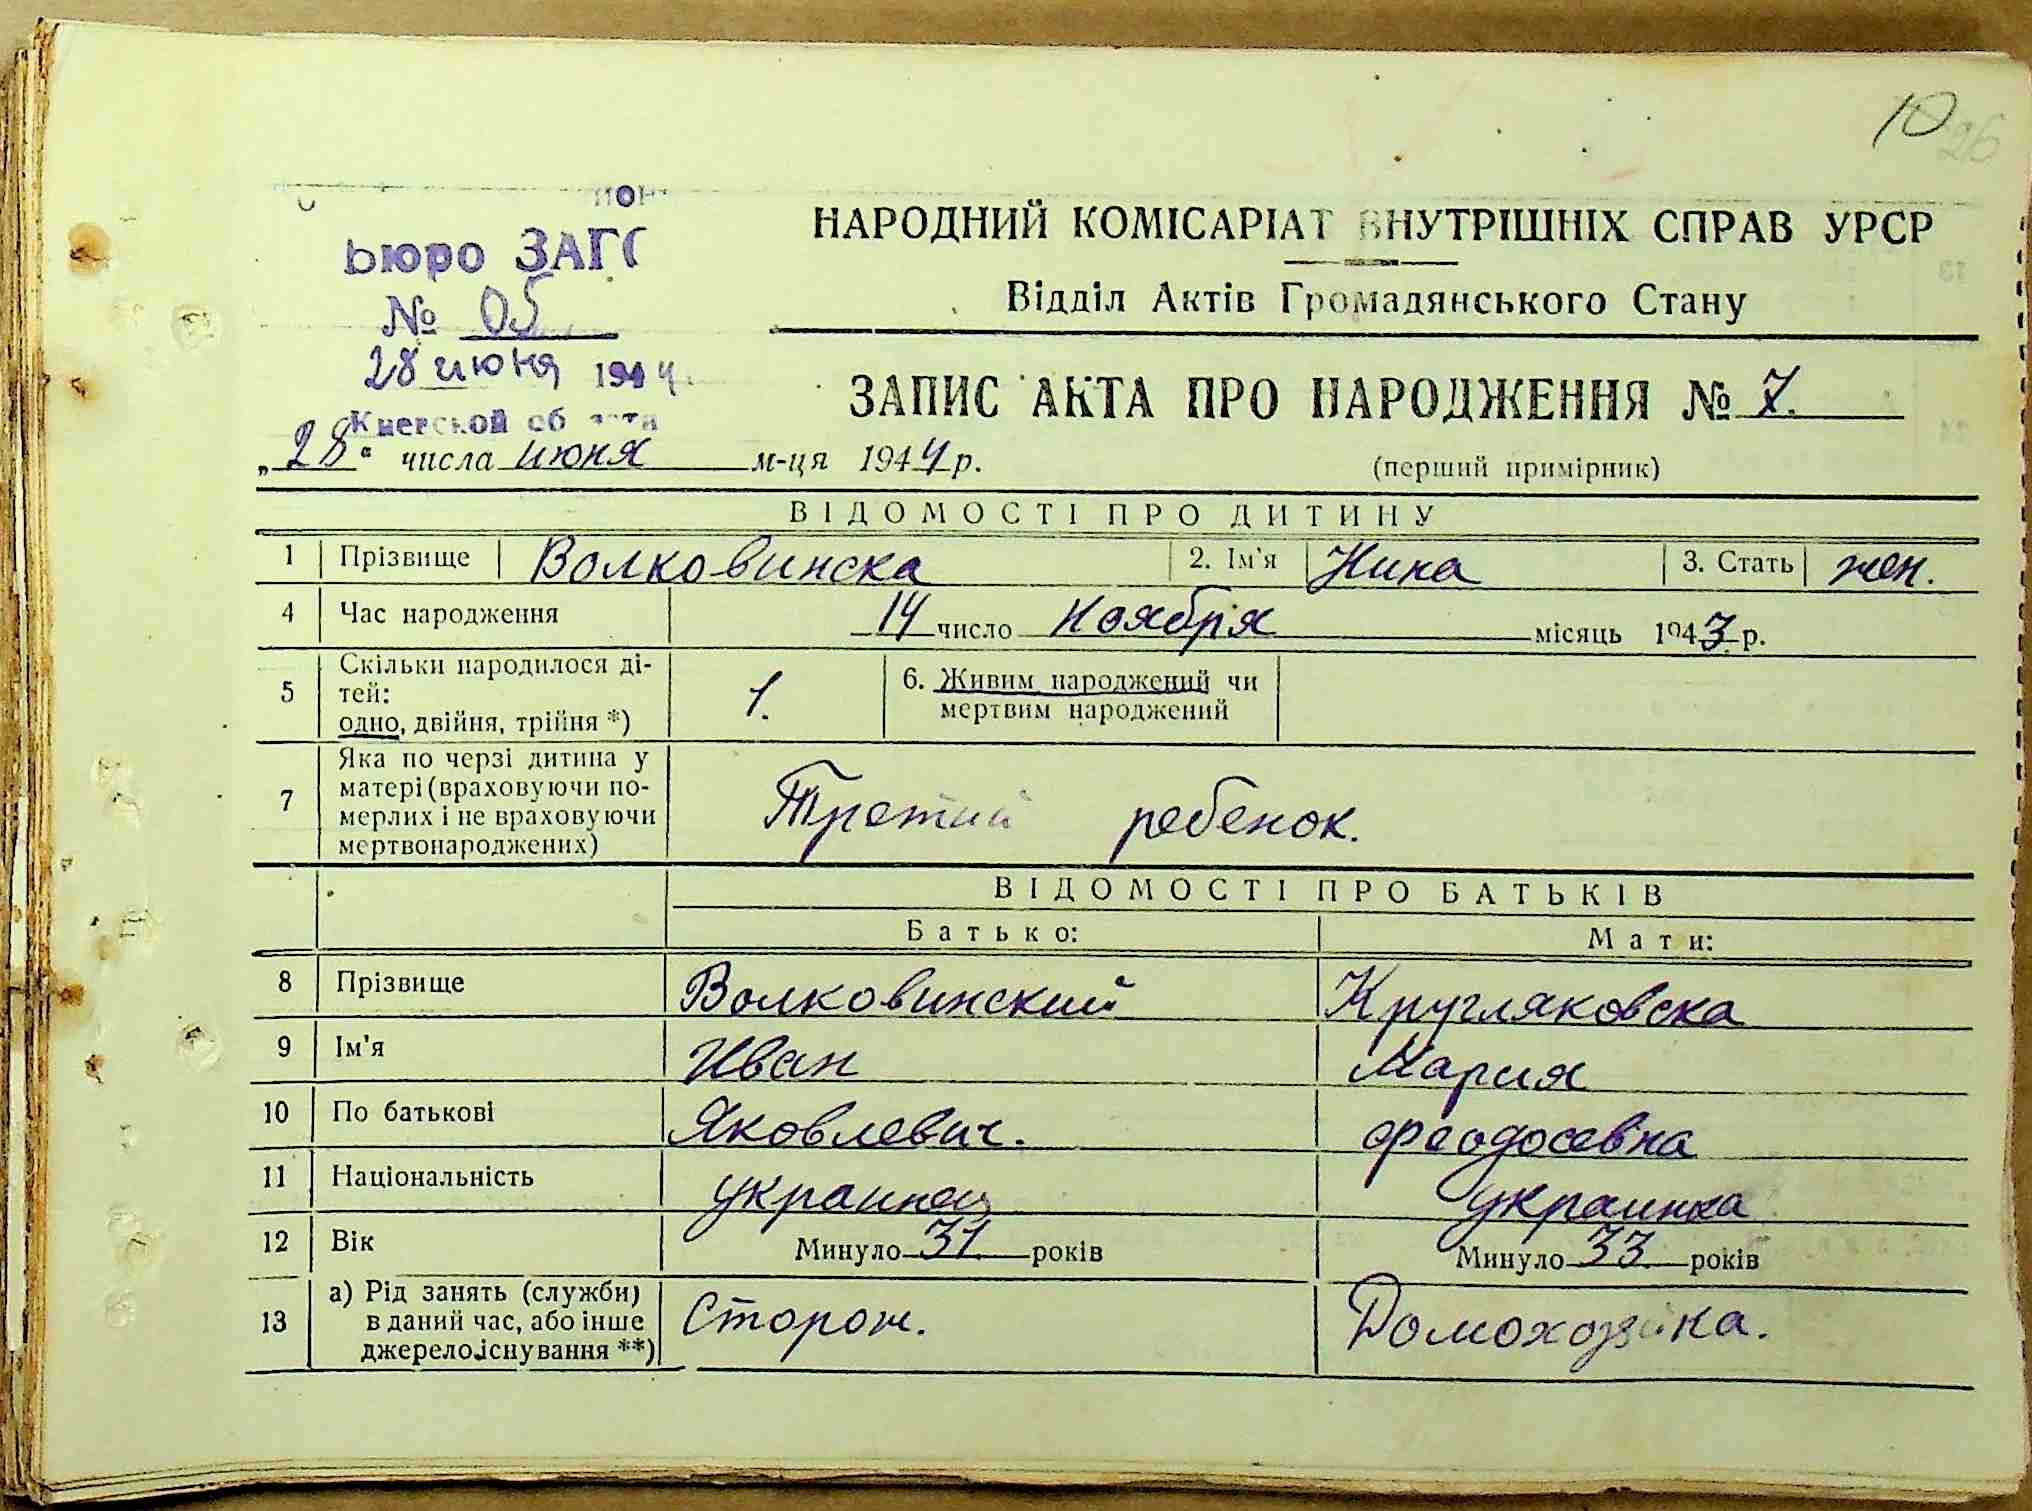 10 26
Бюро ЗАГС
№ 05
28 июня 1944
Киевской
НАРОДНИЙ КОМІСАРІАТ ВНУТРІШНІХ СПРАВ УРСР
Відділ Актів Громадянського Стану
ЗАПИС АКТА ПРО НАРОДЖЕННЯ № 7.
„28“ числа июня м-ця 1944 р.
(перший примірник)
ВІДОМОСТІ ПРО ДИТИНУ
1 Прізвище Волковинска 2. Ім'я Нина 3. Стать жен.
4 Час народження 14 число ноября місяць 1943 р.
5 Скільки народилося ді-
тей:
одно, двійня, трійня *) 1.
6. Живим народжений чи
мертвим народжений
7 Яка по черзі дитина у
матері (враховуючи по-
мерлих і не враховуючи
мертвонароджених)
Третий ребенок.
ВІДОМОСТІ ПРО БАТЬКІВ
Батько: Мати:
8 Прізвище Волковинский Кругляковска
9 Ім'я Иван Мария
10 По батькові Яковлевич. Феодосевна
11 Національність украинец украинка
12 Вік Минуло 31 років Минуло 33 років
13 а) Рід занять (служби)
в даний час, або інше
джерело існування **)
Сторож. Домохозяйка.